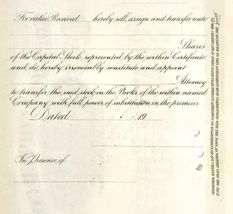 For value Received hereby sell, assign and transfer unto
Shares
of the Capital Stock represented by the within Certificate
and do hereby irrevocably constitute and appoint
Attorney
to transfer the said stock on the Books of the within named
Company with full power of substitution in the premises
Dated 19
In Presence of